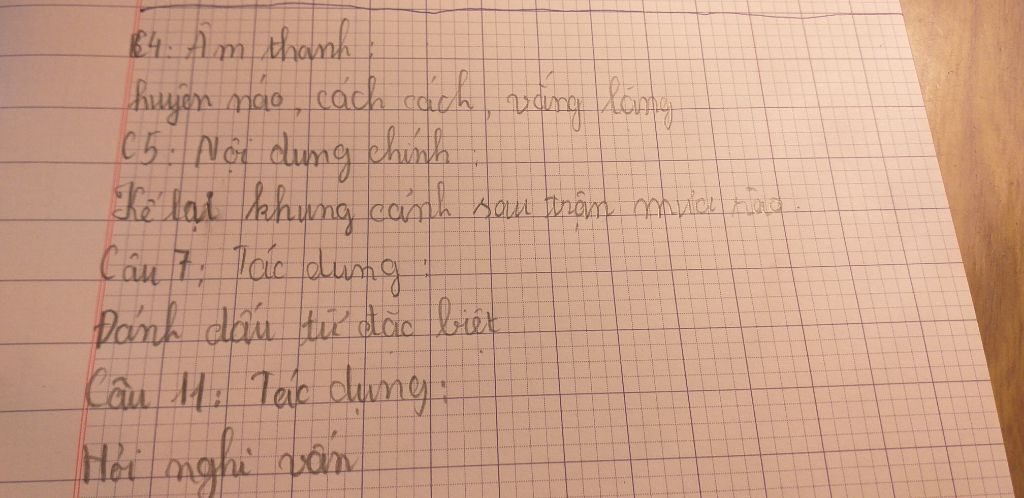 C4: Âm thanh:
huyện náo, cách cách, vắng lăng
C5: Nội dung chính:
Kể lại khung cảnh sau trận mưa rào.
Câu 7: Tác dụng:
Đánh dấu từ đặc biệt
Câu 11: Tác dụng:
Hỏi nghi vấn